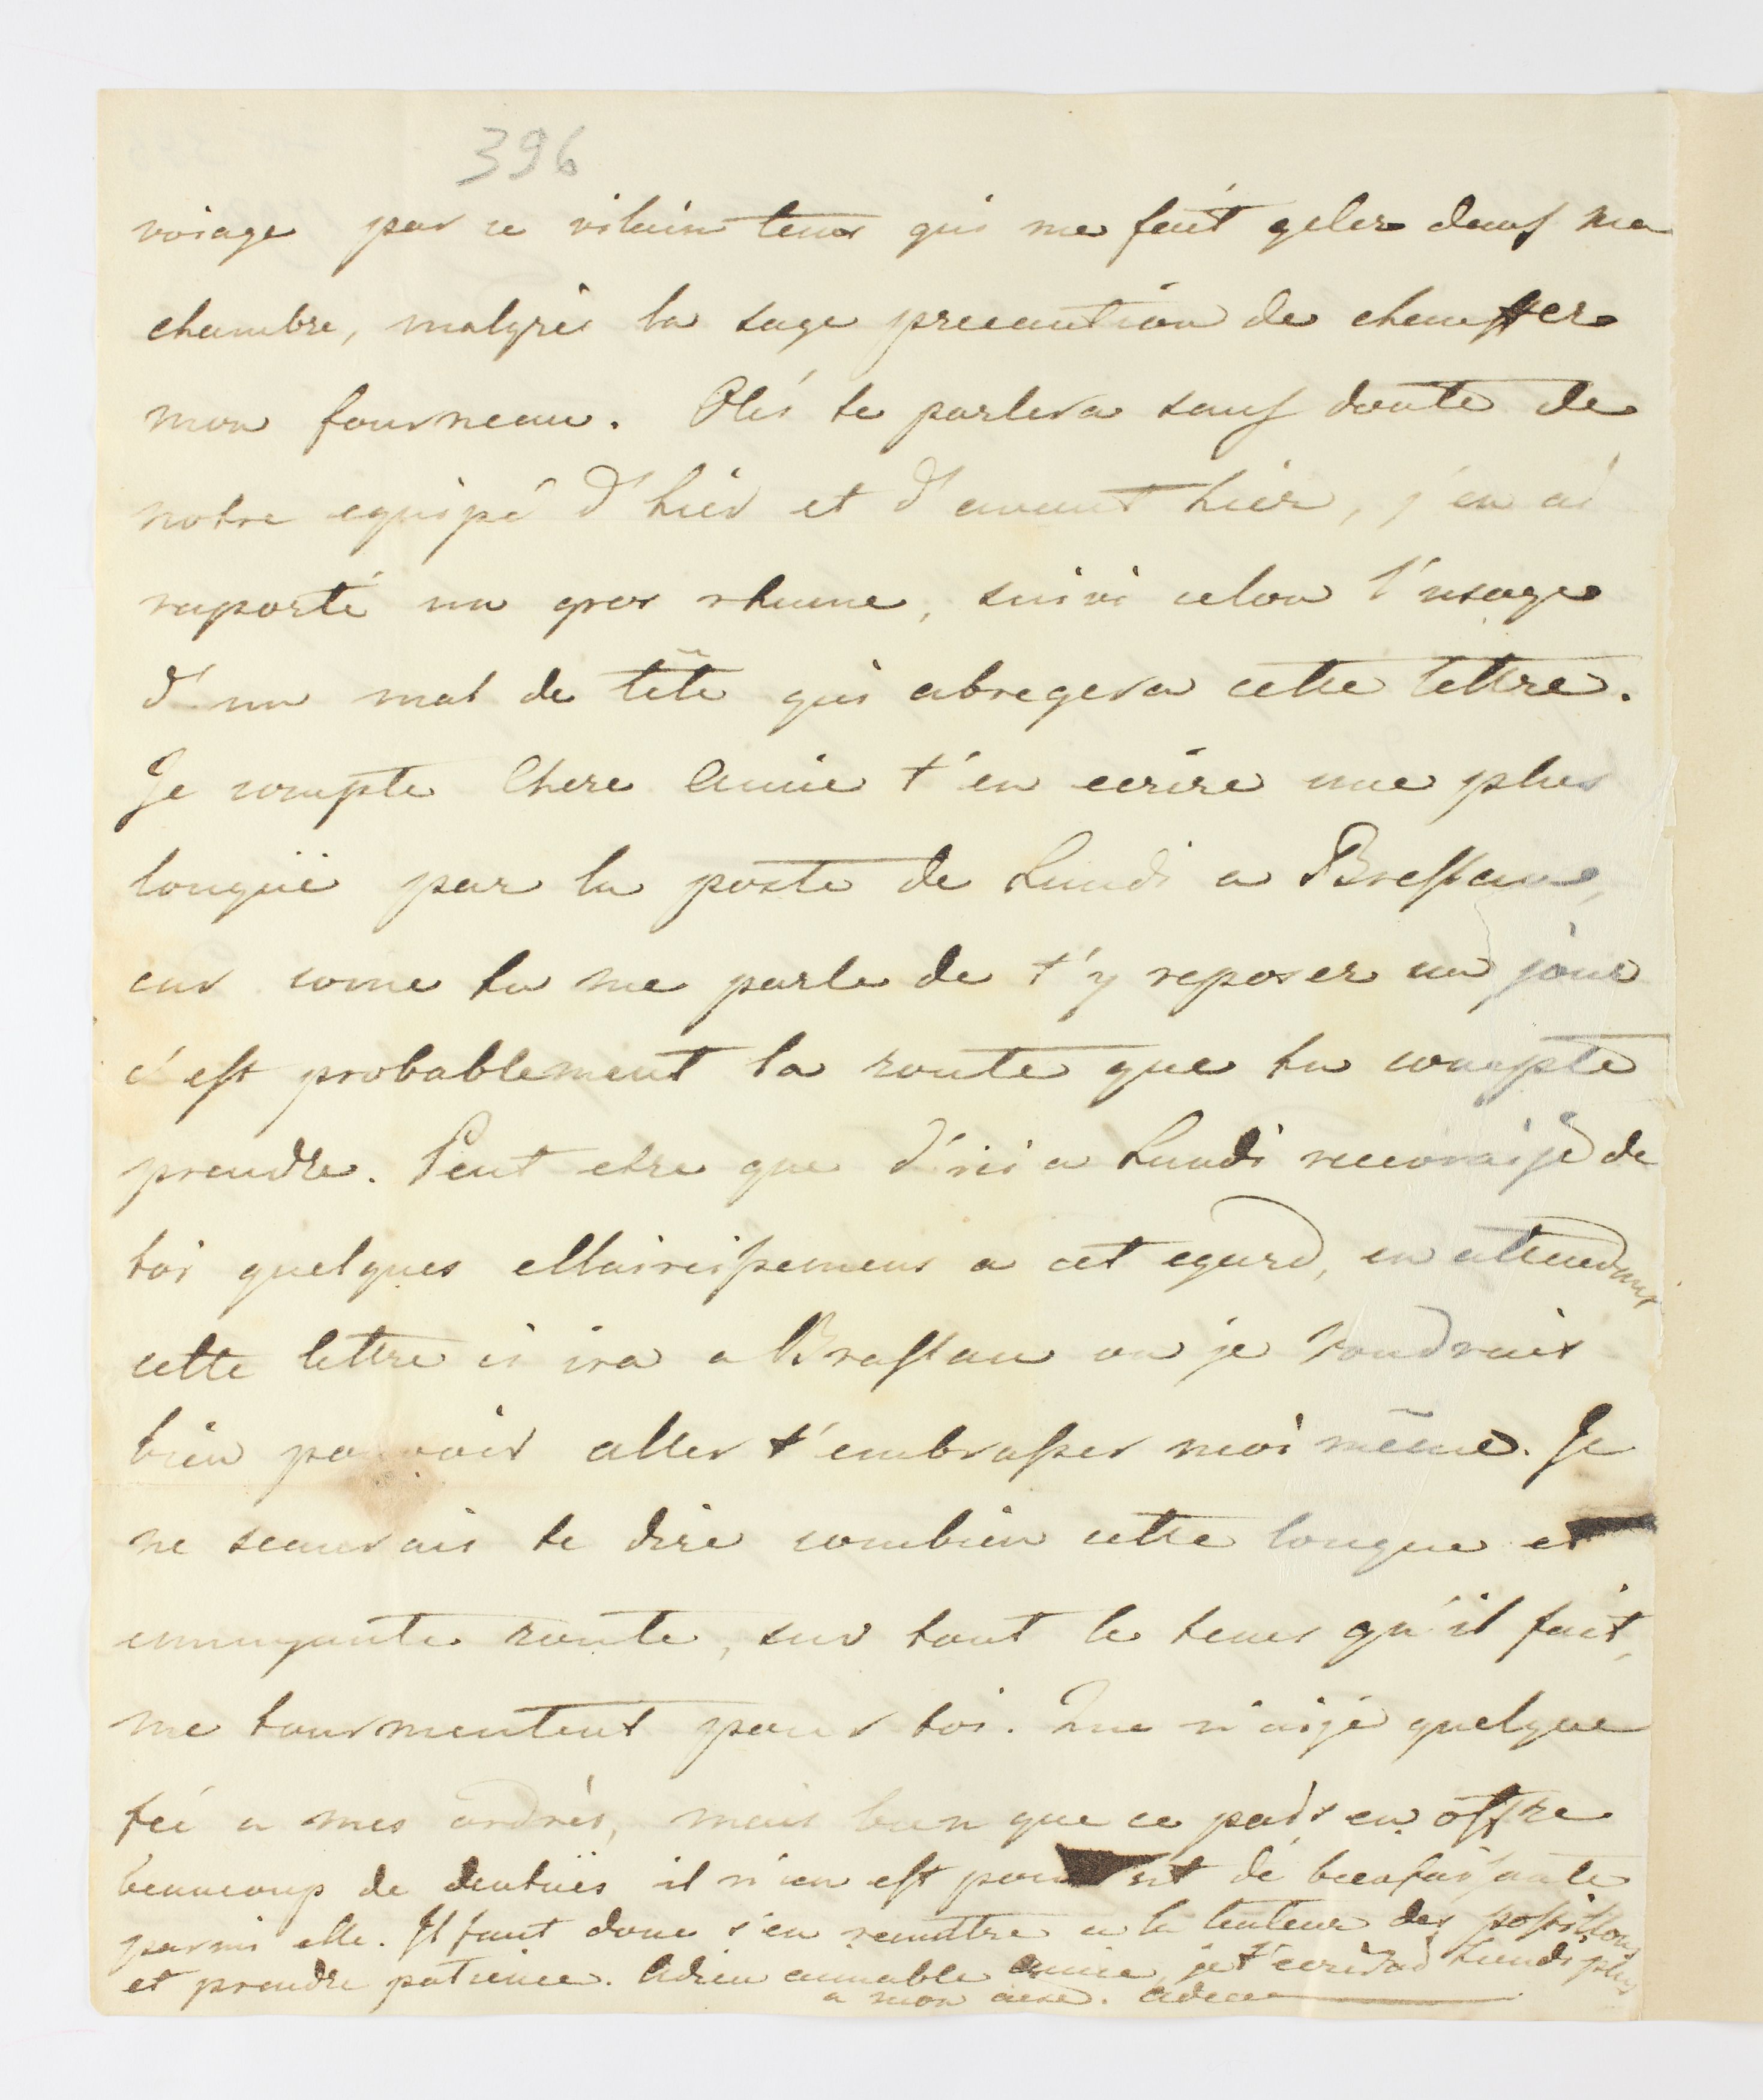 396
voiage par ce vilain tems qui me fait geler dans ma
chambre, malgrés la sage precaution de chauffer
mon fourneau. Olés te parlera sans doute de
notre equipé d'hier et d'avant hier, j'en ai
raporté un gros rhume, suivi celon l'usage
d'un mal de tête qui abregera cette lettre.
Je compte Chere Amie t'en ecrire une plus
longuë par la poste de Lundi a Breslau,
car come tu me parle de t'y reposer un jour
c'est probablement la route que tu compte
prendre. Peut etre que d'ici a Lundi recevraije de
toi quelques ellaircissemens a cet egard, en attendant
cette lettre ci ira a Breslau ou je voudrais
bien pouvoir aller t'embrasser moi même. Je
ne scaurais te dire combien cette longue et
ennuyante route, sur tout le tems qu'il fait,
me tourmentent pour toi. Que n'aije quelque
feé a mes ordres, mais bien que ce païs en offre
beaucoup de il n'en est pourtant de bienfaisante
parmi elle. Il faut donc s'en remettre a la lenteur des postillons
et prendre patience. Adieu aimable amie, je t'ecrirai Lundi plus
a mon aise. Adieu